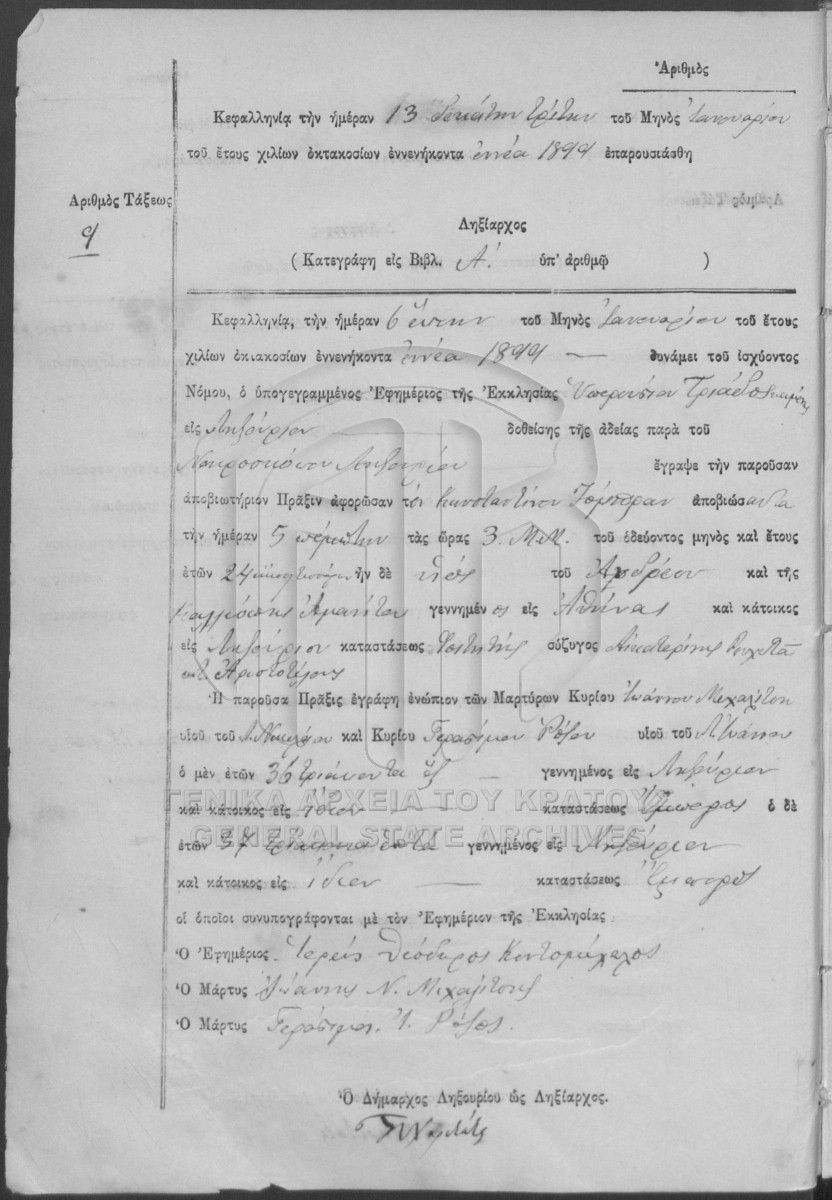 Ἀριθμὸς
Κεφαλληνίᾳ τὴν ἡμέραν 13 δεκάτην τρίτην τοῦ Μηνὸς Ἰανουαρίου
τοῦ ἔτους χιλίων ὀκτακοσίων ἐννενήκοντα ἐννέα 1899 ἐπαρουσιάσθη
Ἀριθμὸς Τάξεως
9
Ληξίαρχος
(Κατεγράφη εἰς Βιβλ. Α΄. ὑπ' ἀριθμῷ )
Κεφαλληνίᾳ, τὴν ἡμέραν 6 ἕκτην τοῦ Μηνὸς Ἰανουαρίου τοῦ ἔτους
χιλίων ὀκτακοσίων ἐννενήκοντα ἐννέα 1899 — δυνάμει τοῦ ἰσχύοντος
Νόμου, ὁ ὑπογεγραμμένος Ἐφημέριος τῆς Ἐκκλησίας Ὑπερουσίου Τριάδος
εἰς Ληξούριον δοθείσης τῆς ἀδείας παρὰ τοῦ
Νεκροσκόπου Ληξουρίου ἔγραψε τὴν παροῦσαν
ἀποβιωτήριον Πρᾶξιν ἀφορῶσαν τὸν Κωνσταντῖνον ἀποβιώσαντα
τὴν ἡμέραν 5 πέμπτην τὰς ὥρας 3. Μ.Μ. τοῦ ὁδεύοντος μηνὸς καὶ ἔτους
ἐτῶν 24 ἦν δὲ υἱός τοῦ Ἀνδρέου καὶ τῆς
Καλλιόπης γεννημένος εἰς Ἀθήνας καὶ κάτοικος
εἰς Ληξούριον καταστάσεως φοιτητής σύζυγος Αἰκατερίνης
Ἀριστοτέλους
Ἡ παροῦσα Πρᾶξις ἐγράφη ἐνώπιον τῶν Μαρτύρων Κυρίου Ἰωάννου Μιχαλίτση
υἱοῦ τοῦ Νικολάου καὶ Κυρίου Γερασίμου Ρόζου υἱοῦ τοῦ Ἰωάννου
ὁ μὲν ἐτῶν 36 τριάκοντα ἕξ γεννημένος εἰς Ληξούριον
καὶ κάτοικος εἰς ἴδιον καταστάσεως Ἔμπορος ὁ δὲ
ἐτῶν 37 τριάκοντα ἑπτά γεννημένος εἰς Ληξούριον
καὶ κάτοικος εἰς ἴδιον — καταστάσεως Ἔμπορος
οἱ ὁποῖοι συνυπογράφονται μὲ τὸν Ἐφημέριον τῆς Ἐκκλησίας
Ὁ Ἐφημέριος. Ἱερεὺς Θεόδωρος Κοντομίχαλος
Ὁ Μάρτυς Ἰωάννης Ν. Μιχαλίτσης
Ὁ Μάρτυς Γεράσιμος Ἰ. Ρόζος.
Ὁ Δήμαρχος Ληξουρίου ὡς Ληξίαρχος.
ΓΕΝΙΚΑ ΑΡΧΕΙΑ ΤΟΥ ΚΡΑΤΟΥΣ
GENERAL STATE ARCHIVES